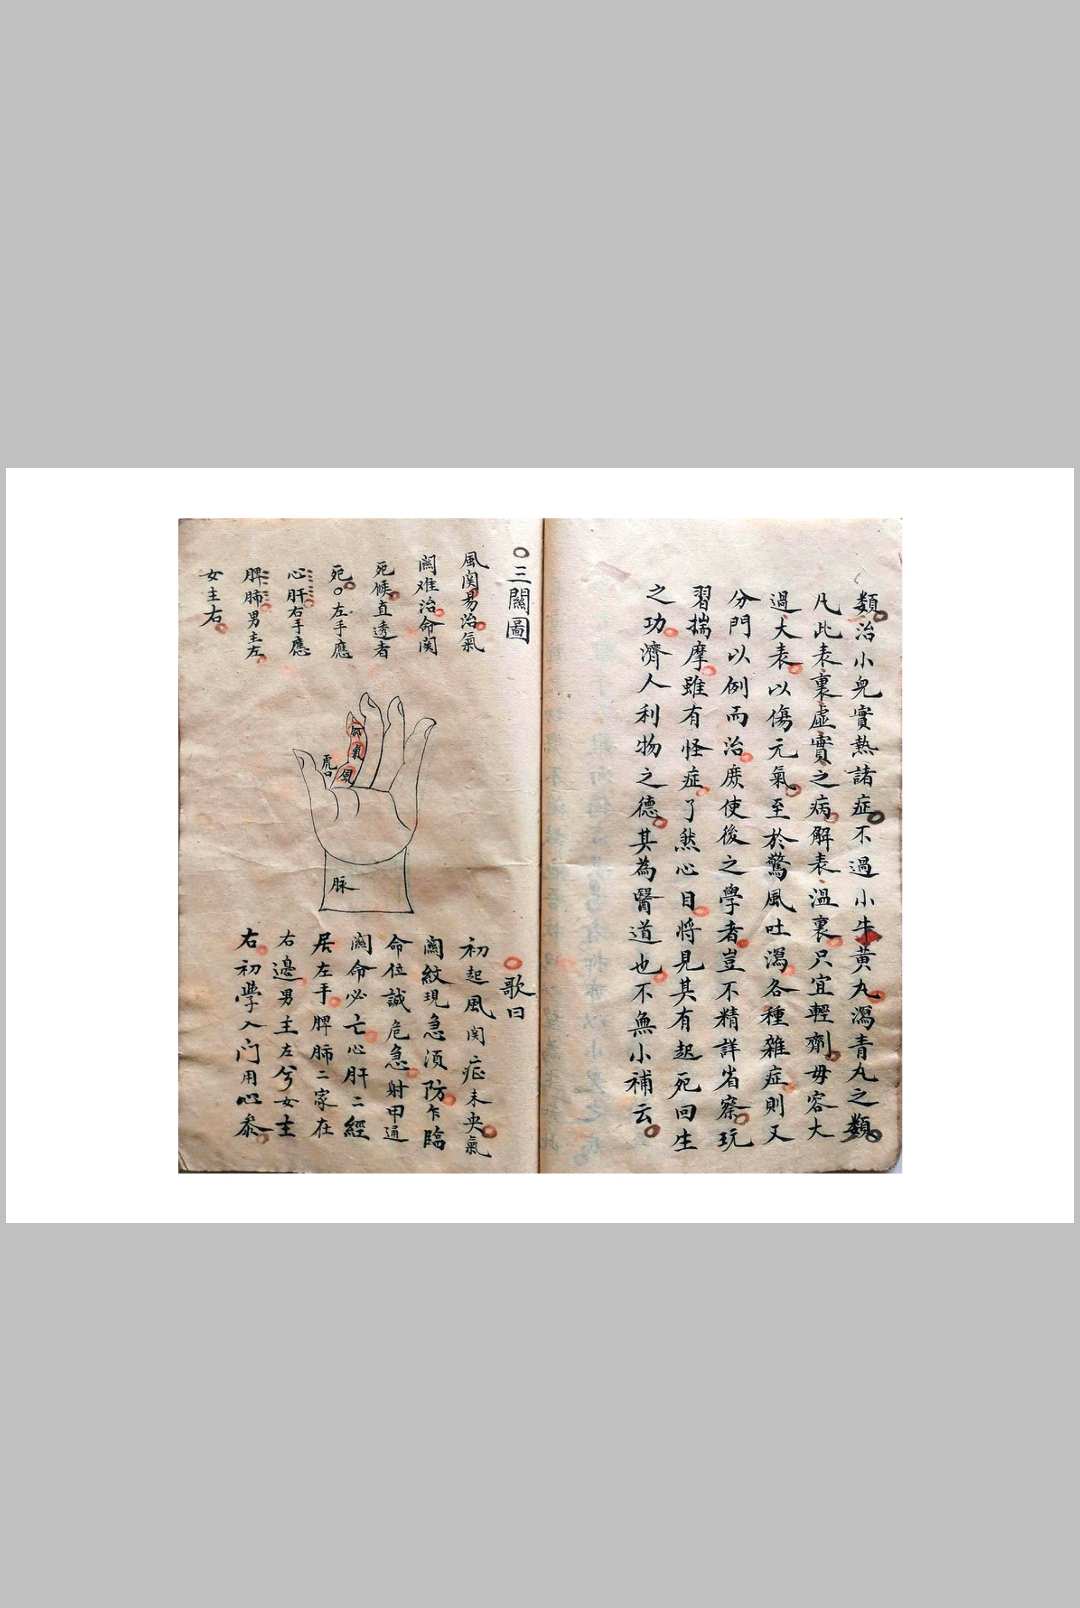 類治小兒實熱諸症不過小牛黃丸瀉青丸之類
凡此表裏虛實之病解表溫裏只宜輕劑毋容大
過大表以傷元氣至於驚風吐瀉各種雜症則又
分門以例而治庶使後之學者豈不精詳省察玩
習揣摩雖有怪症了然心目將見其有起死回生
之功濟人利物之德其為醫道也不無小補云
三關圖
風関易治氣
關难治命関
死候直透者
死左手應
心肝右手應
脾肺男主左
女主右
命
氣
風
虎口
脉
歌曰
初起風関症未央氣
關紋現急須防乍臨
命位誠危急射甲通
關命必亡心肝二經
居左手脾肺二家在
右邊男主左兮女主
右初學入门用心叅